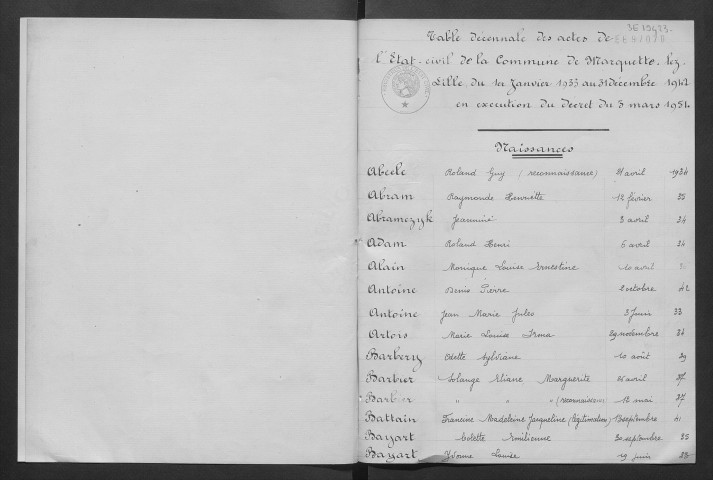 3E 19423
Table décennale des actes de
l'Etat-civil de la Commune de Marquette-lez-
Lille du 1er Janvier 1933 au 31 Décembre 1942
en execution du Decret du 3 mars 1951.
Naissances
Abeele Roland Guy (reconnaissance) 21 avril 1934
Abram Raymonde Henriette 12 février 35
Abramczyk Jeannine 3 avril 34
Adam Roland Henri 6 avril 34
Alain Monique Louise Ernestine 10 avril
Antoine Denis Pierre 2 octobre 42
Antoine Jean Marie Jules 3 Juin 33
Artois Marie Louise Irma 29 novembre 34
Barbery Odette Sylviane 10 août 39
Barbier Solange Eliane Marguerite 25 avril 37
Barbier " " " (reconnaissance) 12 mai 37
Battain Francine Madeleine Jacqueline (légitimation) 13 septembre 41
Bayart Colette Emilienne 30 septembre 35
Bayart Yvonne Louise 19 juin 33